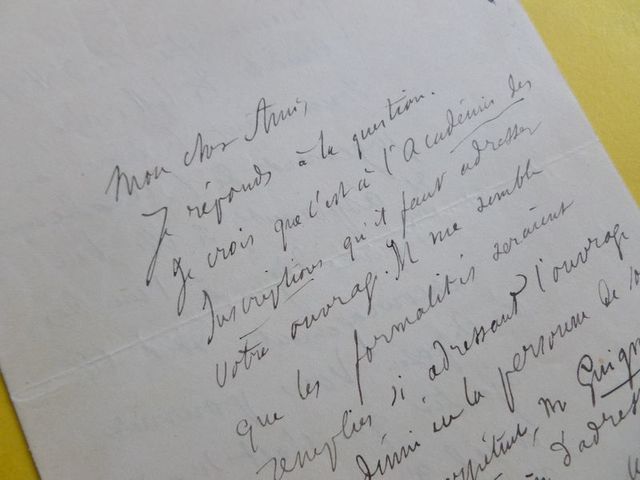 Mon cher Ami,
Je réponds à la question.
Je crois que c'est à l'Académie des
Inscriptions qu'il faut adresser
votre ouvrage. Il me semble
que les formalités seraient
remplies si adressant l'ouvrage
en la personne de
perpétuel, M Guign
d'adres